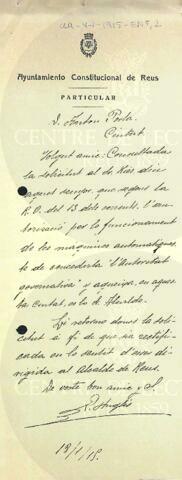 AA-V-1-1915-ENF, 2
Ayuntamiento Constitucional de Reus
PARTICULAR
D. Anton Porta
Ciutat
Volgut amic: Consultada
la solicitut al de Rius diu
aquest sempre, que segons la
R.O. del 13 dels corrents, l'au-
torisació per lo funcionament
de les maquines automatiques
te de concedirla "l'Autoritat
governativa" y aqueixa, en aques-
ta Ciutat, es lo Sr. Alcalde.
Li retorno doncs la soli-
citut a fi de que sia rectifi-
cada en lo sentit d'esser di-
rigida al Alcalde de Reus.
De vosté bon amic y S.
18/1/15.